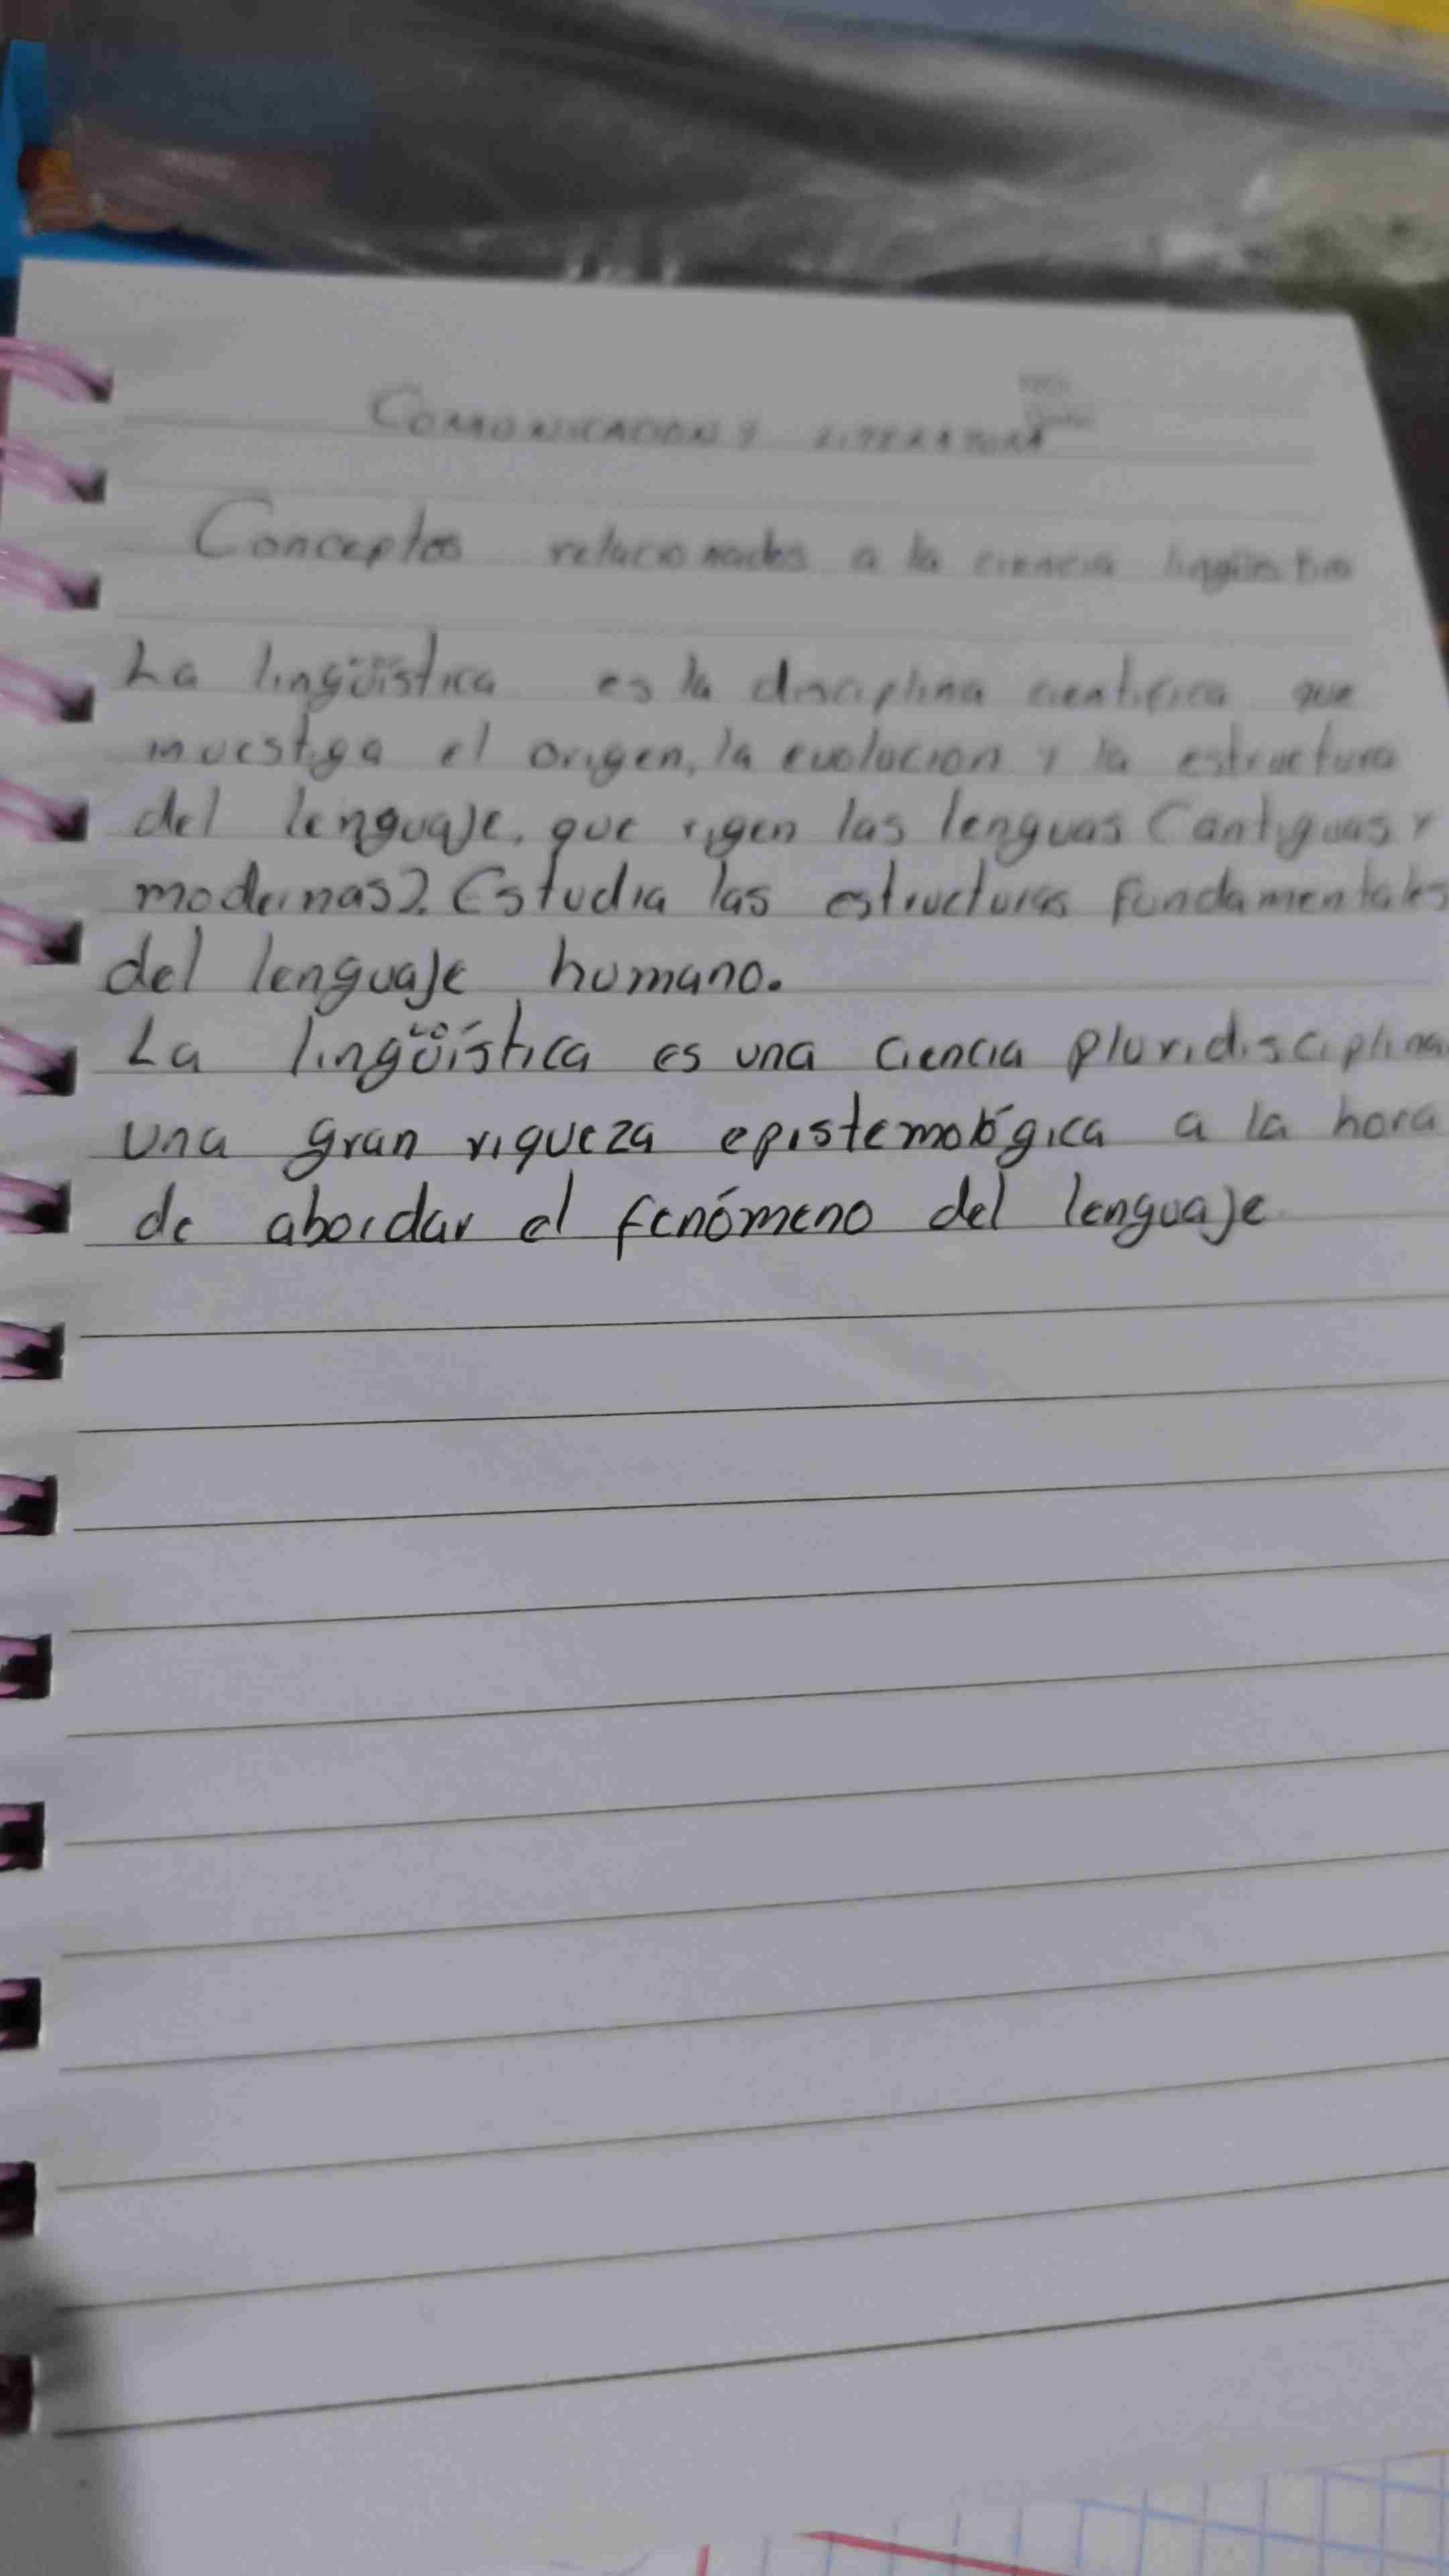 COMUNICACION Y LITERATURA
Conceptos relacionados a la ciencia lingüística
La lingüística es la disciplina científica que
investiga el origen, la evolucion y la estructura
del lenguaje, que rigen las lenguas (antiguas y
modernas). Estudia las estructuras fundamentales
del lenguaje humano.
La lingüística es una ciencia pluridisciplina
una gran riqueza epistemológica a la hora
de abordar el fenómeno del lenguaje